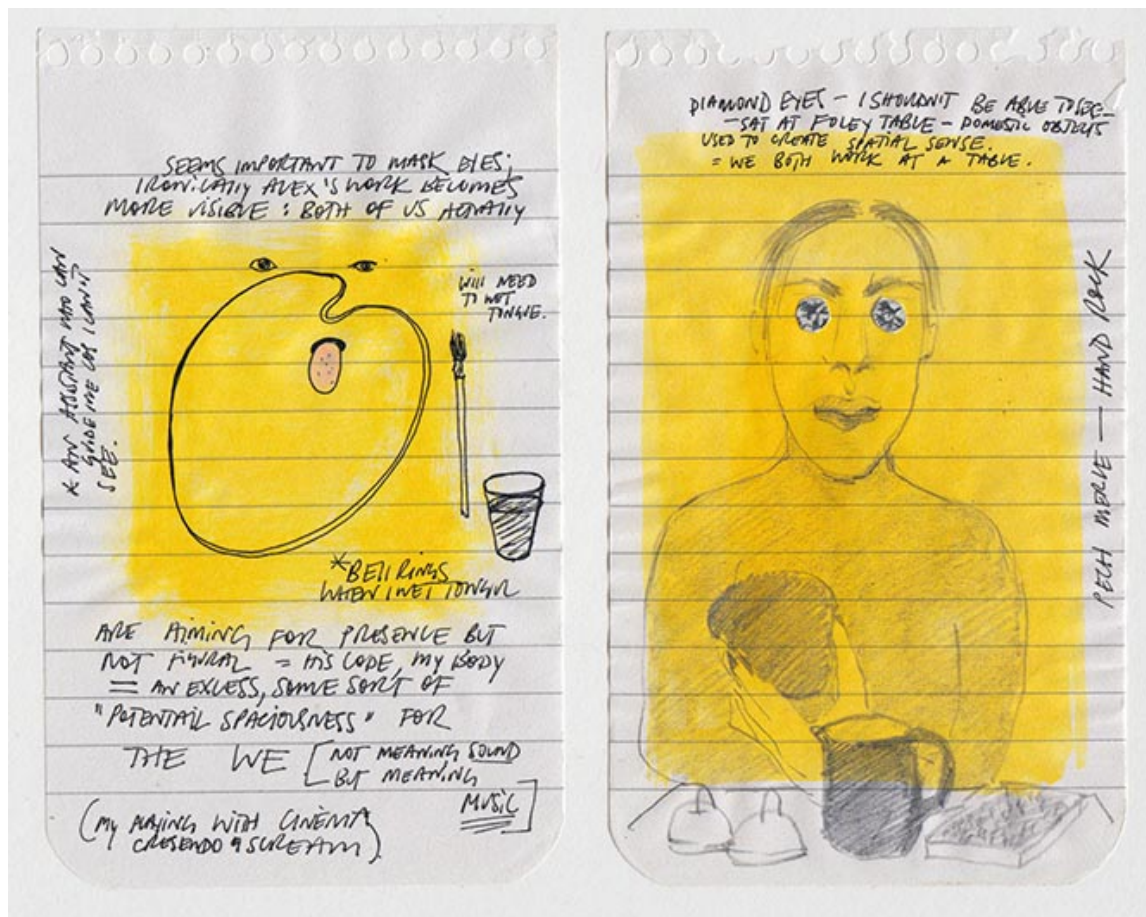 SEEMS IMPORTANT TO MASK EYES;
IRONICALLY ALEX'S WORK BECOMES
MORE VISIBLE : BOTH OF US ACTUALLY
* AN ASSISTANT WHO CAN
GUIDE ME COS I CAN'T
SEE.
WILL NEED
TO WET
TONGUE.
*BELL RINGS
WHEN I WET TONGUE
ARE AIMING FOR PRESENCE BUT
NOT FIGURAL = HIS CODE, MY BODY
= AN EXCESS, SOME SORT OF
"POTENTAIL SPACIOUSNESS" FOR
THE WE [NOT MEANING SOUND
BUT MEANING
MUSIC]
(MY PLAYING WITH CINEMA
CRESENDO & SCREAM)
DIAMOND EYES – I SHOULDN'T BE ABLE TO SEE –
– SAT AT FOLEY TABLE – DOMESTIC OBJECTS
USED TO CREATE SPATIAL SENSE.
= WE BOTH WORK AT A TABLE.
PECH MERLE — HAND ROCK